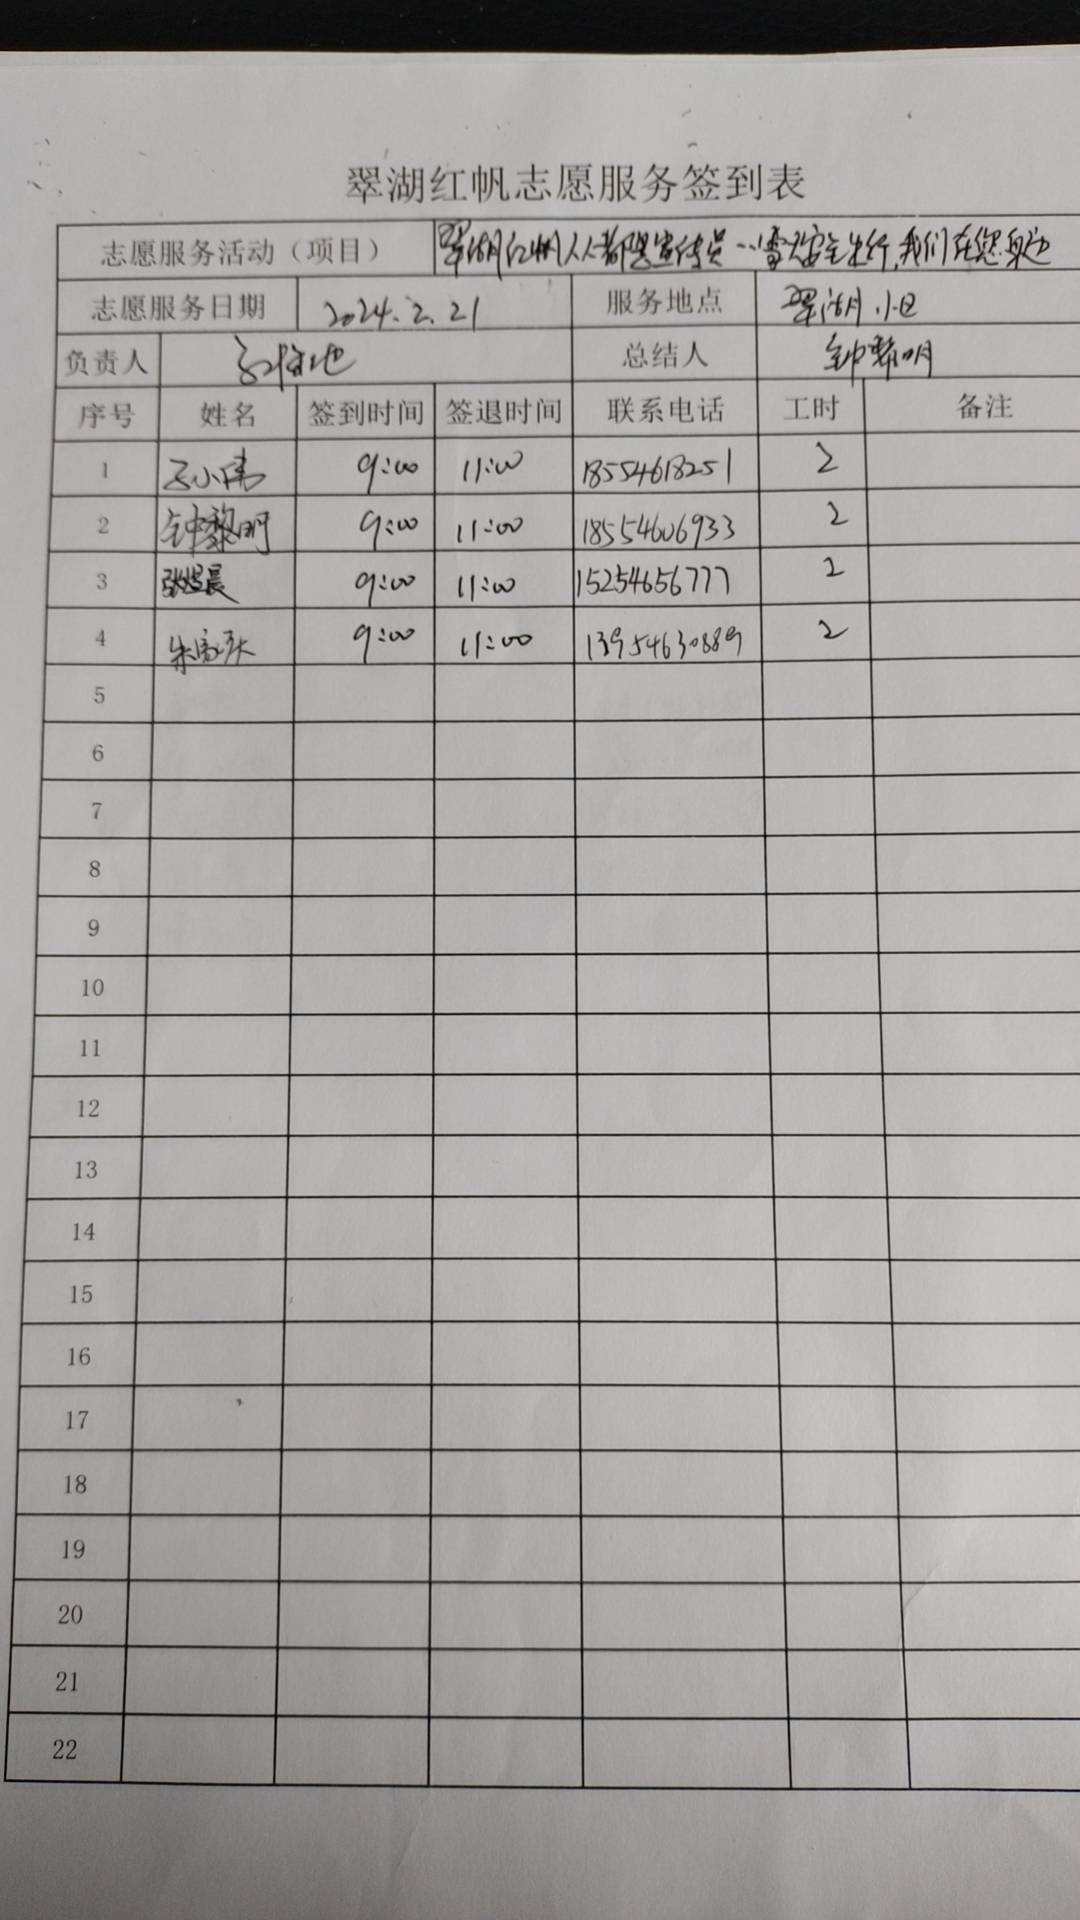 翠湖红帆志愿服务签到表
志愿服务活动（项目） 翠湖红帆人人都是宣传员--雪天安全出行,我们在您身边
志愿服务日期 2024.2.21 服务地点 翠湖月小区
负责人 总结人 钟黎明
序号 姓名 签到时间 签退时间 联系电话 工时 备注
1 9:00 11:00 18554618251 2
2 钟黎明 9:00 11:00 18554606933 2
3 9:00 11:00 15254656777 2
4 9:00 11:00 13954630889 2
5
6
7
8
9
10
11
12
13
14
15
16
17
18
19
20
21
22